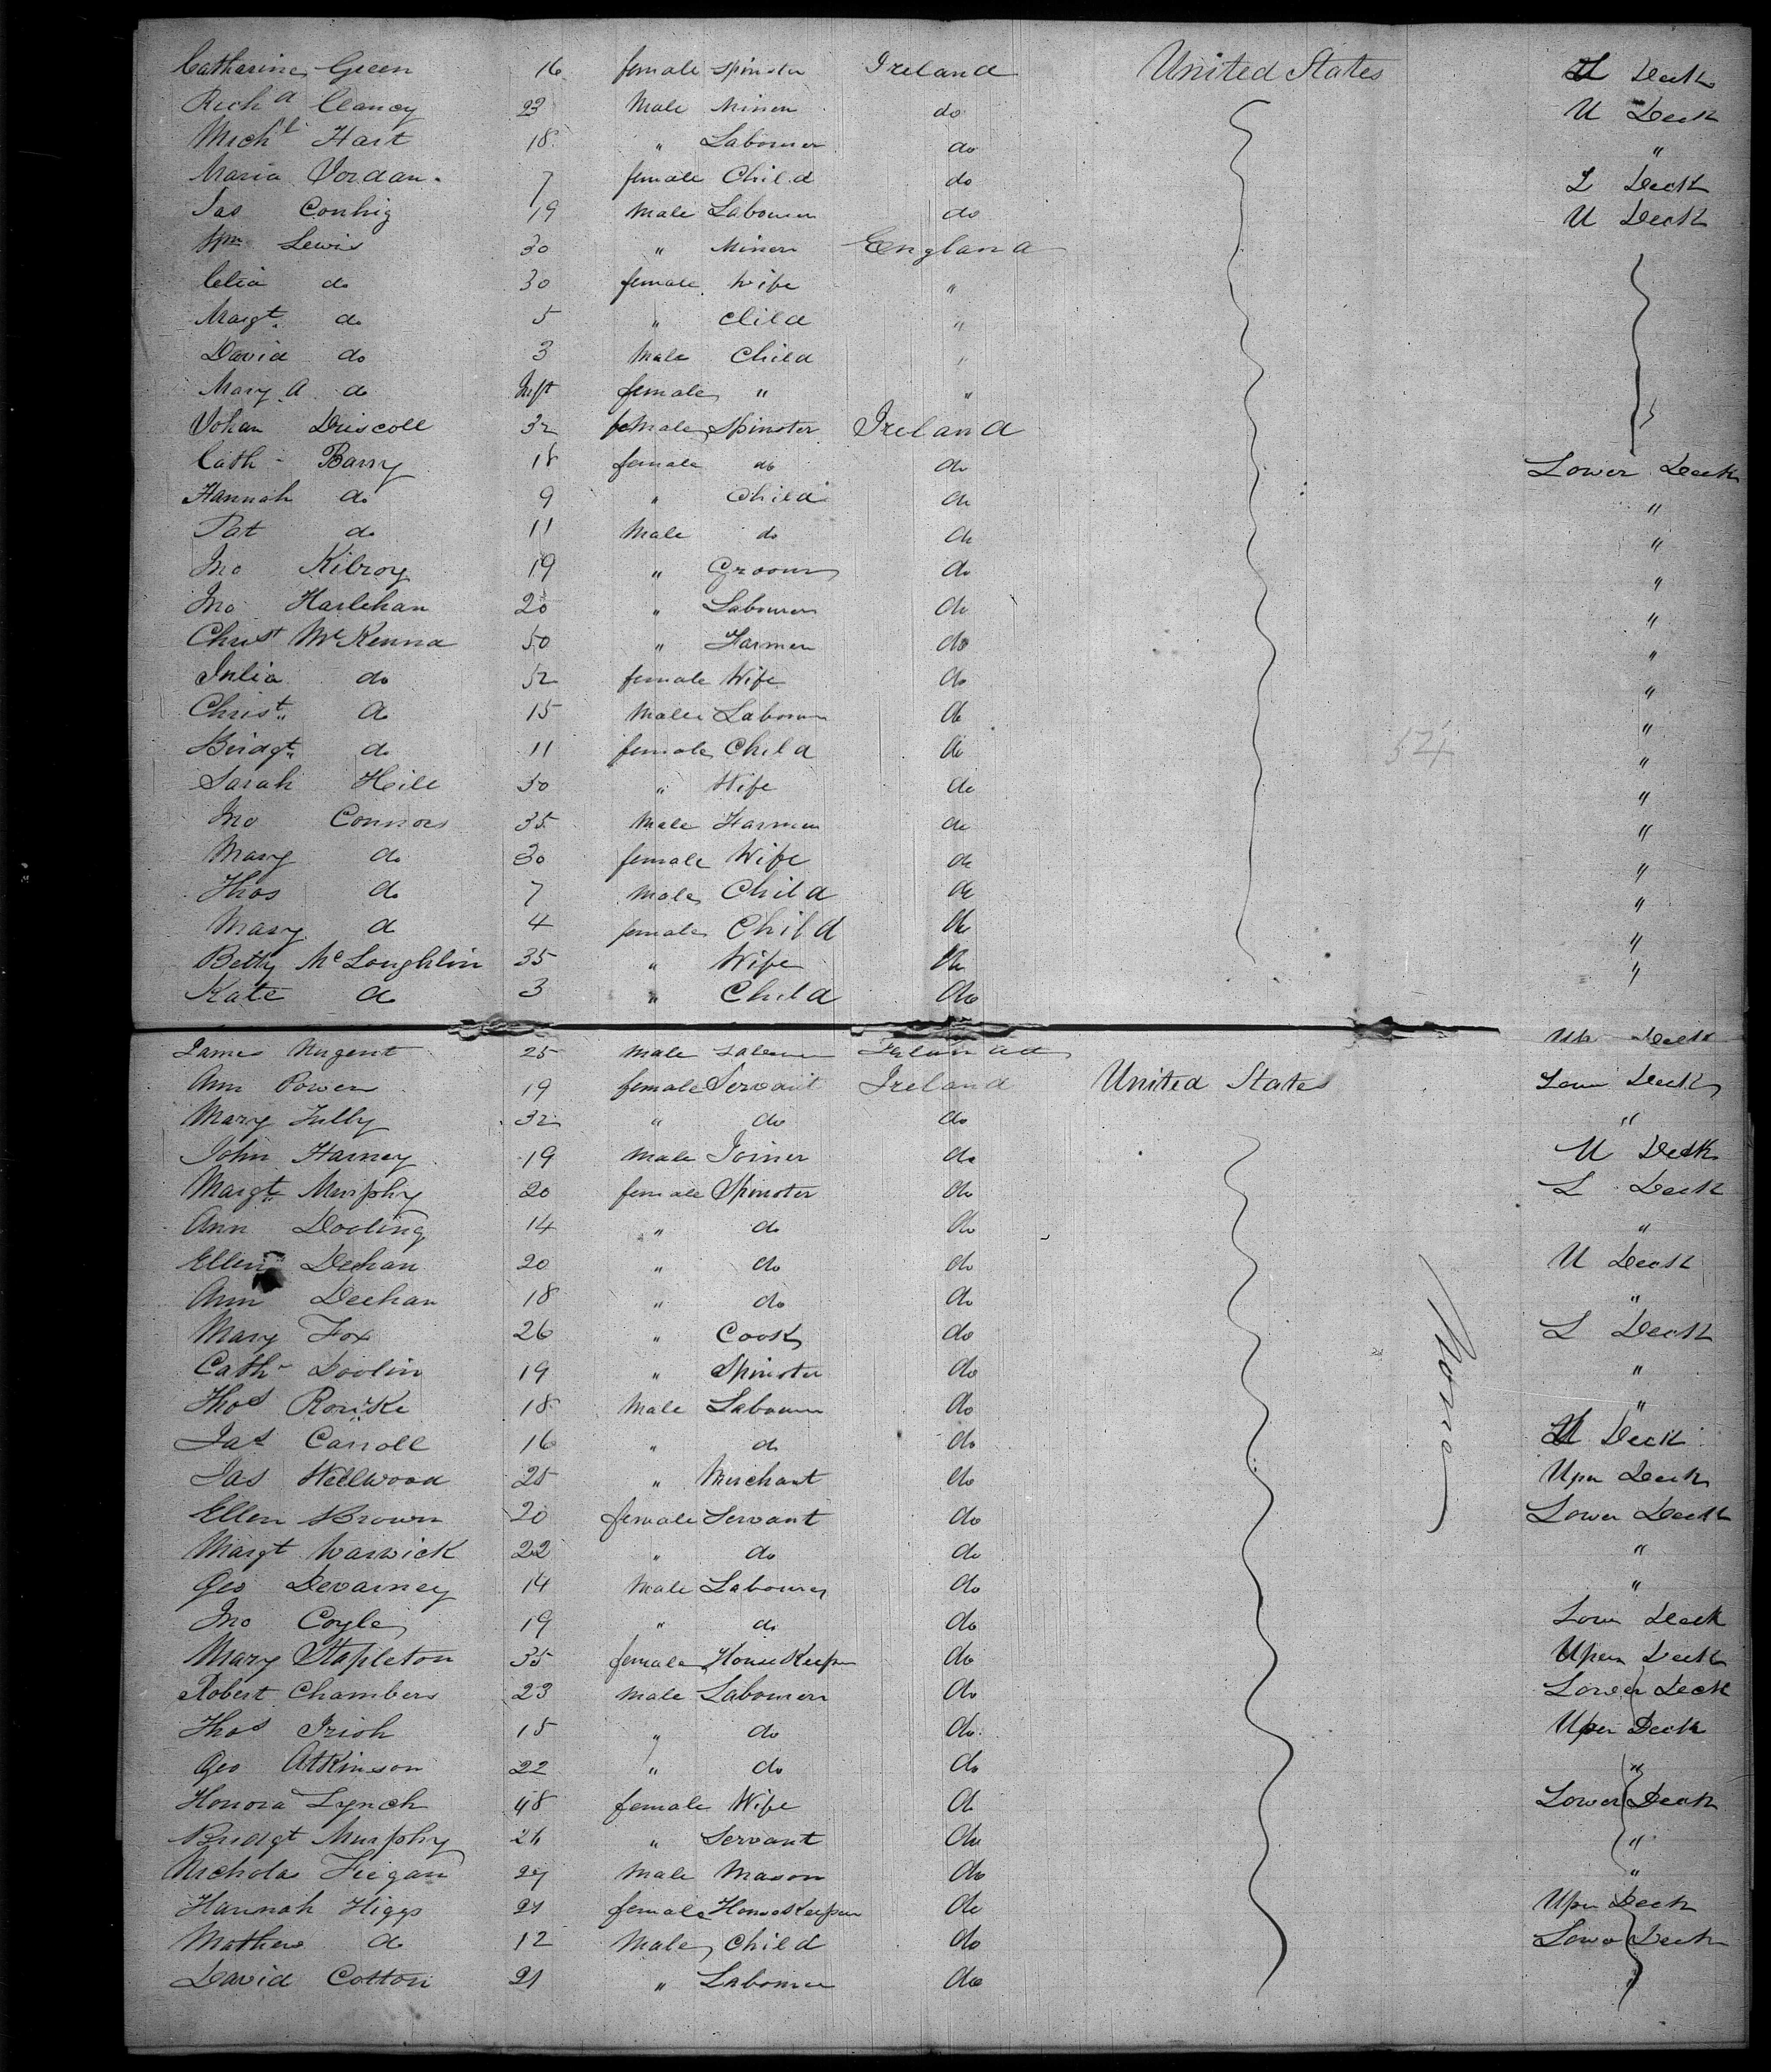 Catharine Green 16 female Spinster Ireland United States L Deck
Richd Clancy 23 Male Miner do U Deck
Michl Hart 18 " Labourer do "
Maria Jordan 7 female Child do L Deck
Jas Conhig 19 Male Labourer do U Deck
Wm Lewis 30 " Miner England
Celia do 30 female Wife "
Margt do 5 " Child "
David do 3 Male Child "
Mary A do Inft female " "
Johan Driscoll 32 female Spinster Ireland
Cath Barry 18 female do do Lower Deck
Hannah do 9 " Child do "
Pat do 11 Male do do "
Jno Kilroy 19 " Groom do "
Jno Harlehan 20 " Labourer do "
Christ McKenna 50 " Farmer do "
Julia do 52 female Wife do "
Christ do 15 Male Labourer do "
Bridgt do 11 female Child do "
Sarah Heill 30 " Wife do "
Jno Connors 35 Male Farmer do "
Mary do 30 female Wife do "
Thos do 7 Male Child do "
Mary do 4 female Child do "
Betty McLoughlin 35 " Wife do "
Kate do 3 " Child do
James Nugent 25 Male Ireland Up Deck
Ann Power 19 female Servant Ireland United States Lower Deck
Mary Tully 32 " do do "
John Harney 19 Male Joiner do U Deck
Margt Murphy 20 female Spinster do L Deck
Ann Dooling 14 " do do "
Ellen Deehan 20 " do do U Deck
Ann Deehan 18 " do do "
Mary Fox 26 " Cook do L Deck
Cath Doolin 19 " Spinster do "
Thos Rourke 18 Male Labourer do "
Jas Carroll 16 " do do U Deck
Jas Wellwood 25 " Merchant do Uper Deck
Ellen Brown 20 female Servant do Lower Deck
Margt Warwick 22 " do do "
Geo Devarney 14 Male Labourer do "
Jno Coyle 19 " do do Lower Deck
Mary Stapleton 35 female HouseKeeper do Uper Deck
Robert Chambers 23 Male Labourer do Lower Deck
Thos Irish 15 " do do Uper Deck
Geo Atkinson 22 " do do "
Honora Lynch 48 female Wife do Lower Deck
Bridgt Murphy 26 " Servant do "
Nicholas Fiegan 27 Male Mason do "
Hannah Higgs 21 female HouseKeeper do Uper Deck
Mathew do 12 Male Child do Lower Deck
David Cotton 21 " Labourer do "
None